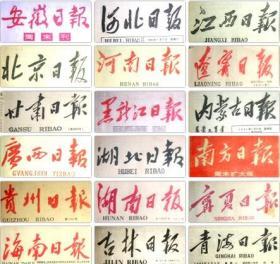 安徽日報
周末刊
河北日报
HEBEI RIBAO
江西日报
JIANGXI RIBAO
北京日报
河南日報
HENAN RIBAO
遼寧日報
LIAONING RIBAO
甘肃日報
GANSU RIBAO
黑龍江日報
内蒙古日報
廣西日報
GVANGJSIH YIZBAO
湖北日報
HUBEI RIBAO
南方日報
周末扩大版
貴州日報
GUIZHOU RIBAO
湖南日報
HUNAN RIBAO
寧夏日報
NINGXIA RIBAO
海南日報
吉林日报
JILIN RIBAO
青海日報
QINGHAI RIBAO